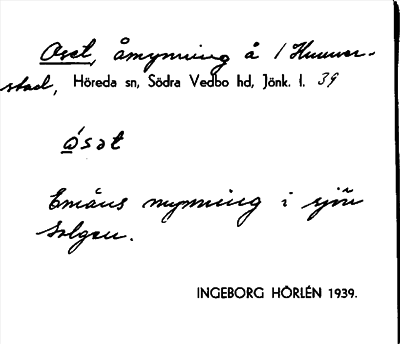 Oset, åmynning å 1 Hummer-
stad, Höreda sn, Södra Vedbo hd, Jönk. l. 39
ósət
Emåns mynning i sjön
Solgen.
INGEBORG HÖRLÉN 1939.